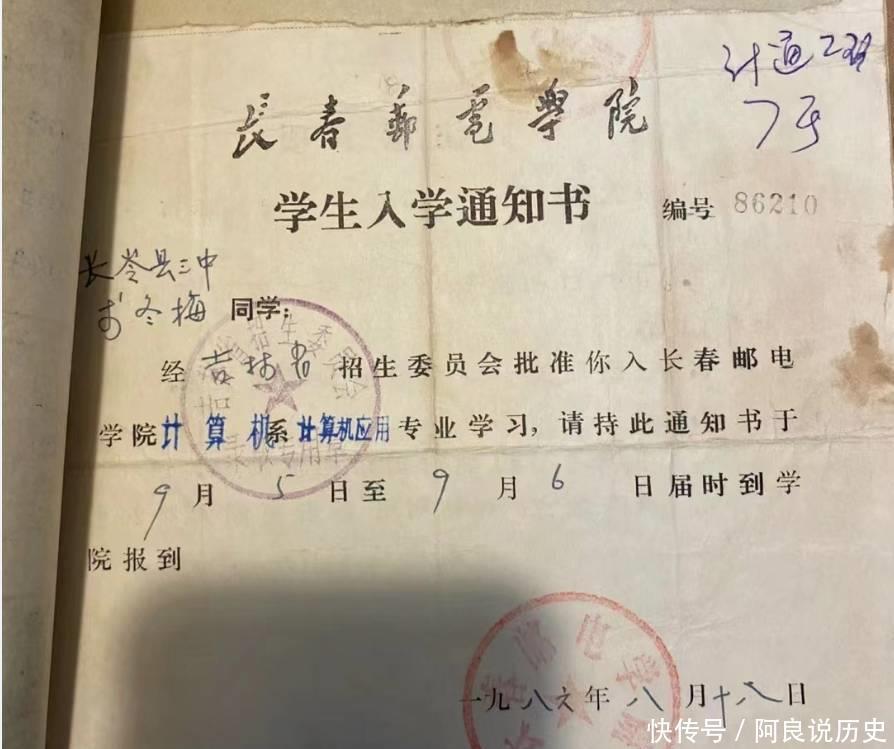 计通
长春郵電學院
学生入学通知书 编号 86210
长岺县三中
冬梅 同学:
经吉林省招生委员会批准你入长春邮电
学院计算机系计算机应用专业学习,请持此通知书于
9月5日至9月6日届时到学
院报到
一九八六年八月十八日
快传号/阿良说历史